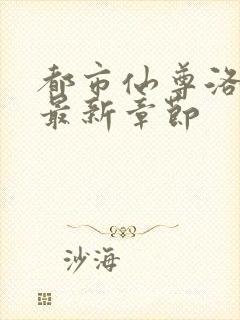 都市仙尊洛
最新章节
沙海